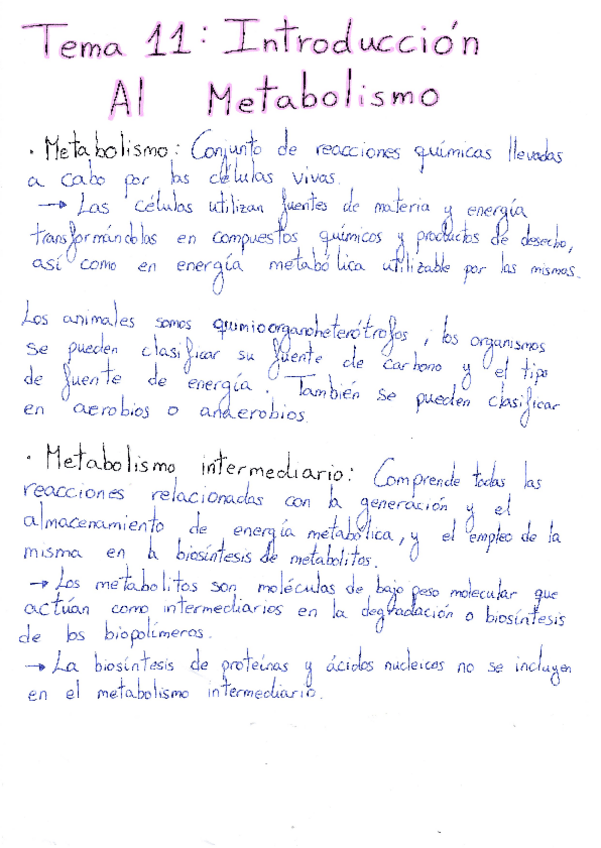 Tema 11: Introducción
Al Metabolismo
· Metabolismo: Conjunto de reacciones químicas llevadas
a cabo por las células vivas.
→ Las células utilizan fuentes de materia y energía
transformándolas en compuestos químicos y productos de desecho,
así como en energía metabólica utilizable por las mismas.
Los animales somos quimioorganoheterótrofos, los organismos
se pueden clasificar su fuente de carbono y el tipo
de fuente de energía. También se pueden clasificar
en aerobios o anaerobios.
· Metabolismo intermediario: Comprende todas las
reacciones relacionadas con la generación y el
almacenamiento de energía metabólica, y el empleo de la
misma en la biosíntesis de metabolitos.
→ Los metabolitos son moléculas de bajo peso molecular que
actúan como intermediarios en la degradación o biosíntesis
de los biopolímeros.
→ La biosíntesis de proteínas y ácidos nucleicos no se incluyen
en el metabolismo intermediario.